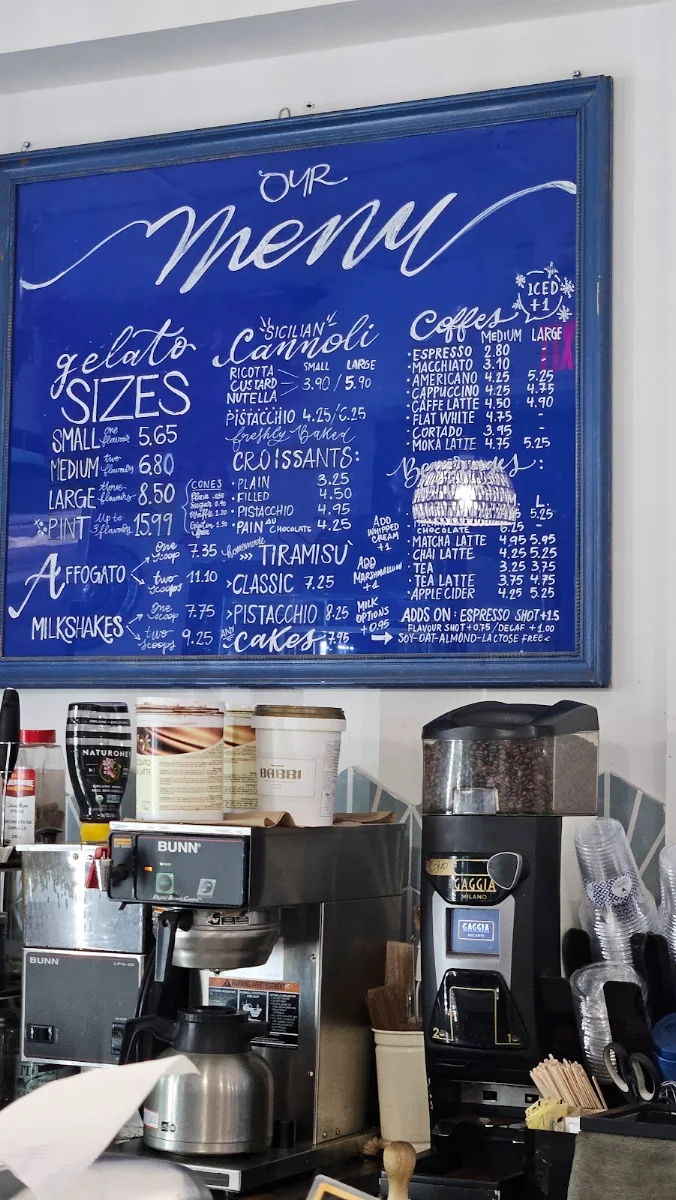 OUR
menu
gelato
SIZES
SMALL one flavour 5.65
MEDIUM two flavours 6.80
LARGE three flavours 8.50
PINT Up to 3 flavours 15.99
CONES
AFFOGATO
one scoop 7.35
two scoops 11.10
MILKSHAKES
one scoop 7.75
two scoops 9.25
"SICILIAN"
Cannoli
SMALL LARGE
RICOTTA
CUSTARD 3.90 / 5.90
NUTELLA
PISTACCHIO 4.25/6.25
freshly Baked
CROISSANTS:
• PLAIN 3.25
• FILLED 4.50
• PISTACCHIO 4.95
• PAIN AU CHOCOLATE 4.25
homemade
TIRAMISU`
>CLASSIC 7.25
>PISTACCHIO 8.25
ANY cakes 7.95
ADD WHIPPED CREAM +1
ADD MARSHMALLOW +1
MILK OPTIONS +0.95
ICED +1
Coffes
MEDIUM LARGE
• ESPRESSO 2.80
• MACCHIATO 3.10
• AMERICANO 4.25 5.25
• CAPPUCCINO 4.25 4.75
• CAFFE LATTE 4.50 4.90
• FLAT WHITE 4.75 -
• CORTADO 3.95 -
• MOKA LATTE 4.75 5.25
Beverages:
L.
5.25
CHOCOLATE 6.25 -
• MATCHA LATTE 4.95 5.95
• CHAI LATTE 4.25 5.25
• TEA 3.25 3.75
• TEA LATTE 3.75 4.75
• APPLE CIDER 4.25 5.25
ADDS ON: ESPRESSO SHOT +1.5
FLAVOUR SHOT +0.75 / DECAF +1.00
SOY-OAT-ALMOND-LACTOSE FREE
NATURONE
BABBI
BUNN
BUNN
GAGGIA
MILANO
GAGGIA
MILANO
2 1